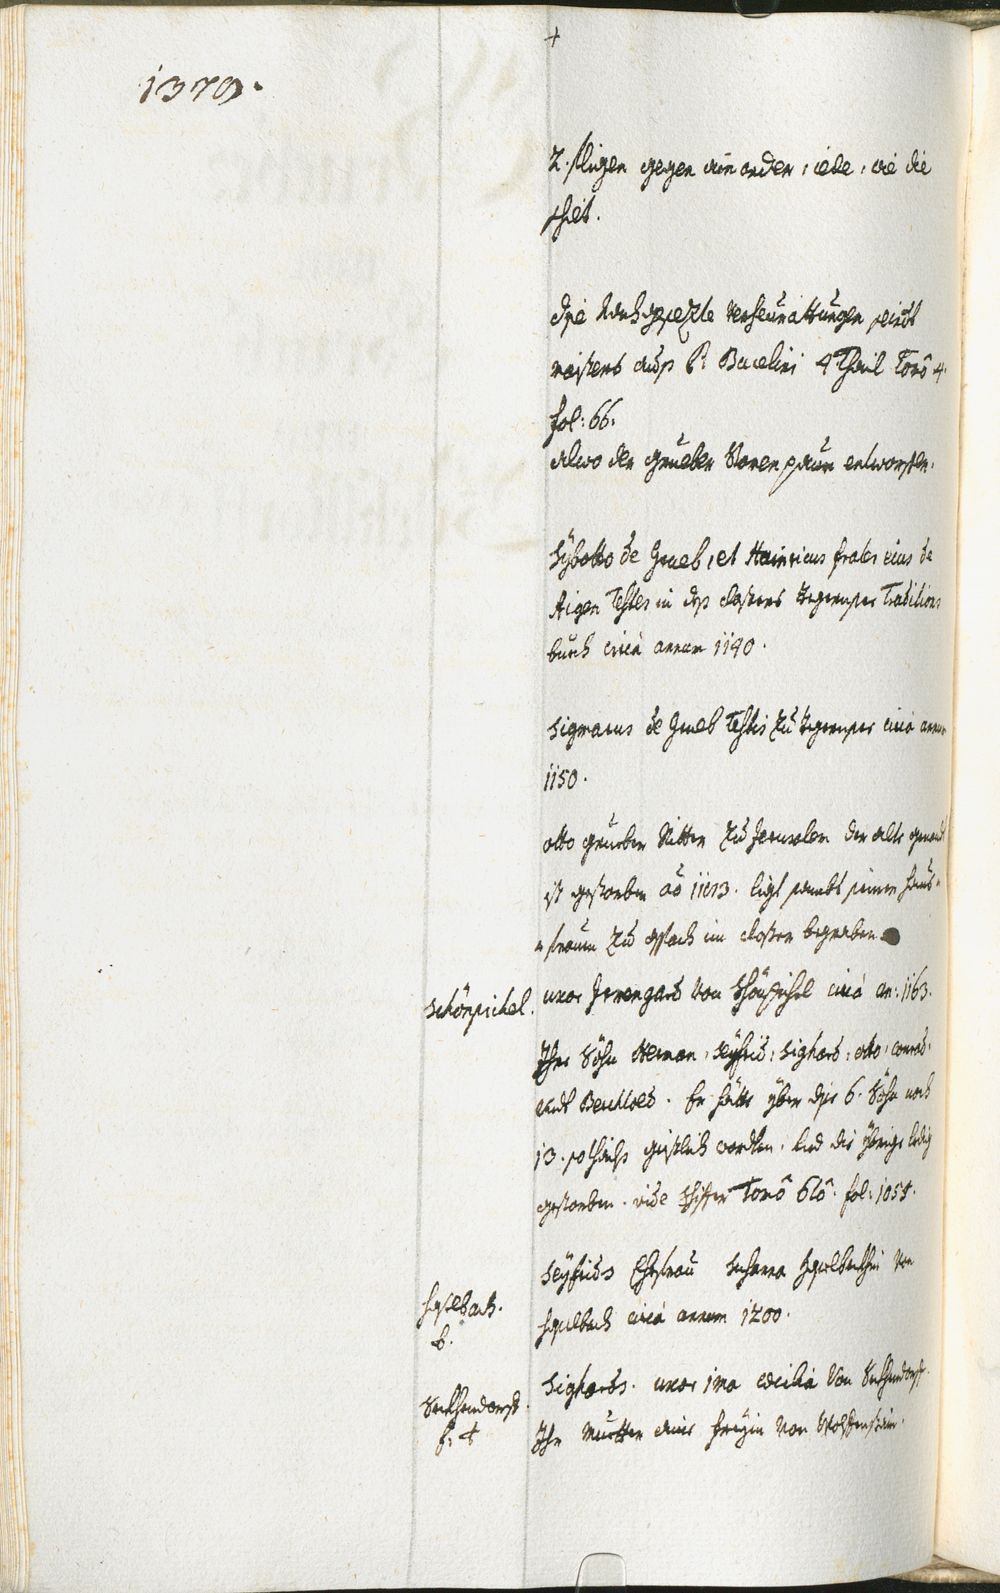 1379.
+
2. fligen gegen ain ander, iede, wie die
shet.
dise nachgesezte verheurattungen seindt
maistens auss P: Bucelini 4 Theil Tomo 4.
fol: 66.
alwo der grueber Stamen paum entworffen.
Sÿboto de Grueb, et Hainricus frater eius de
Aigen Testes in dess closters Tegernsee Traditions
buech circà annum 1140.
Sigmarus de Grueb Testis zu Tegernsee circà annum
1150.
otto grueber Ritter zu Jerusalem der alte genandt
ist gestorben ao 1193. ligt sambt seiner haus-
frauen zu asbach im closter begraben.
Schönpichel.
uxor Jrmengard von Schönpichel circà an: 1163.
Jhre Söhn Herman, Seÿfrid, Sighard, otto, Conrad,
undt Berchtold. Er hatte über dise 6. Söhn noch
13. so theils geistlich worden, und die übrige ledig
gestorben. vide Schifer Tomo 6to. fol: 1054.
Seÿfrids Ehefrau Susanna Hgselbachin von
Hgselbach circà annum 1200.
Hgselbach.
b.
Sighards. uxor 1ma Cecilia von Seckhendorff.
Seckhendorff.
f. t
Jhr Mutter eine freÿin von Wolffenstain.